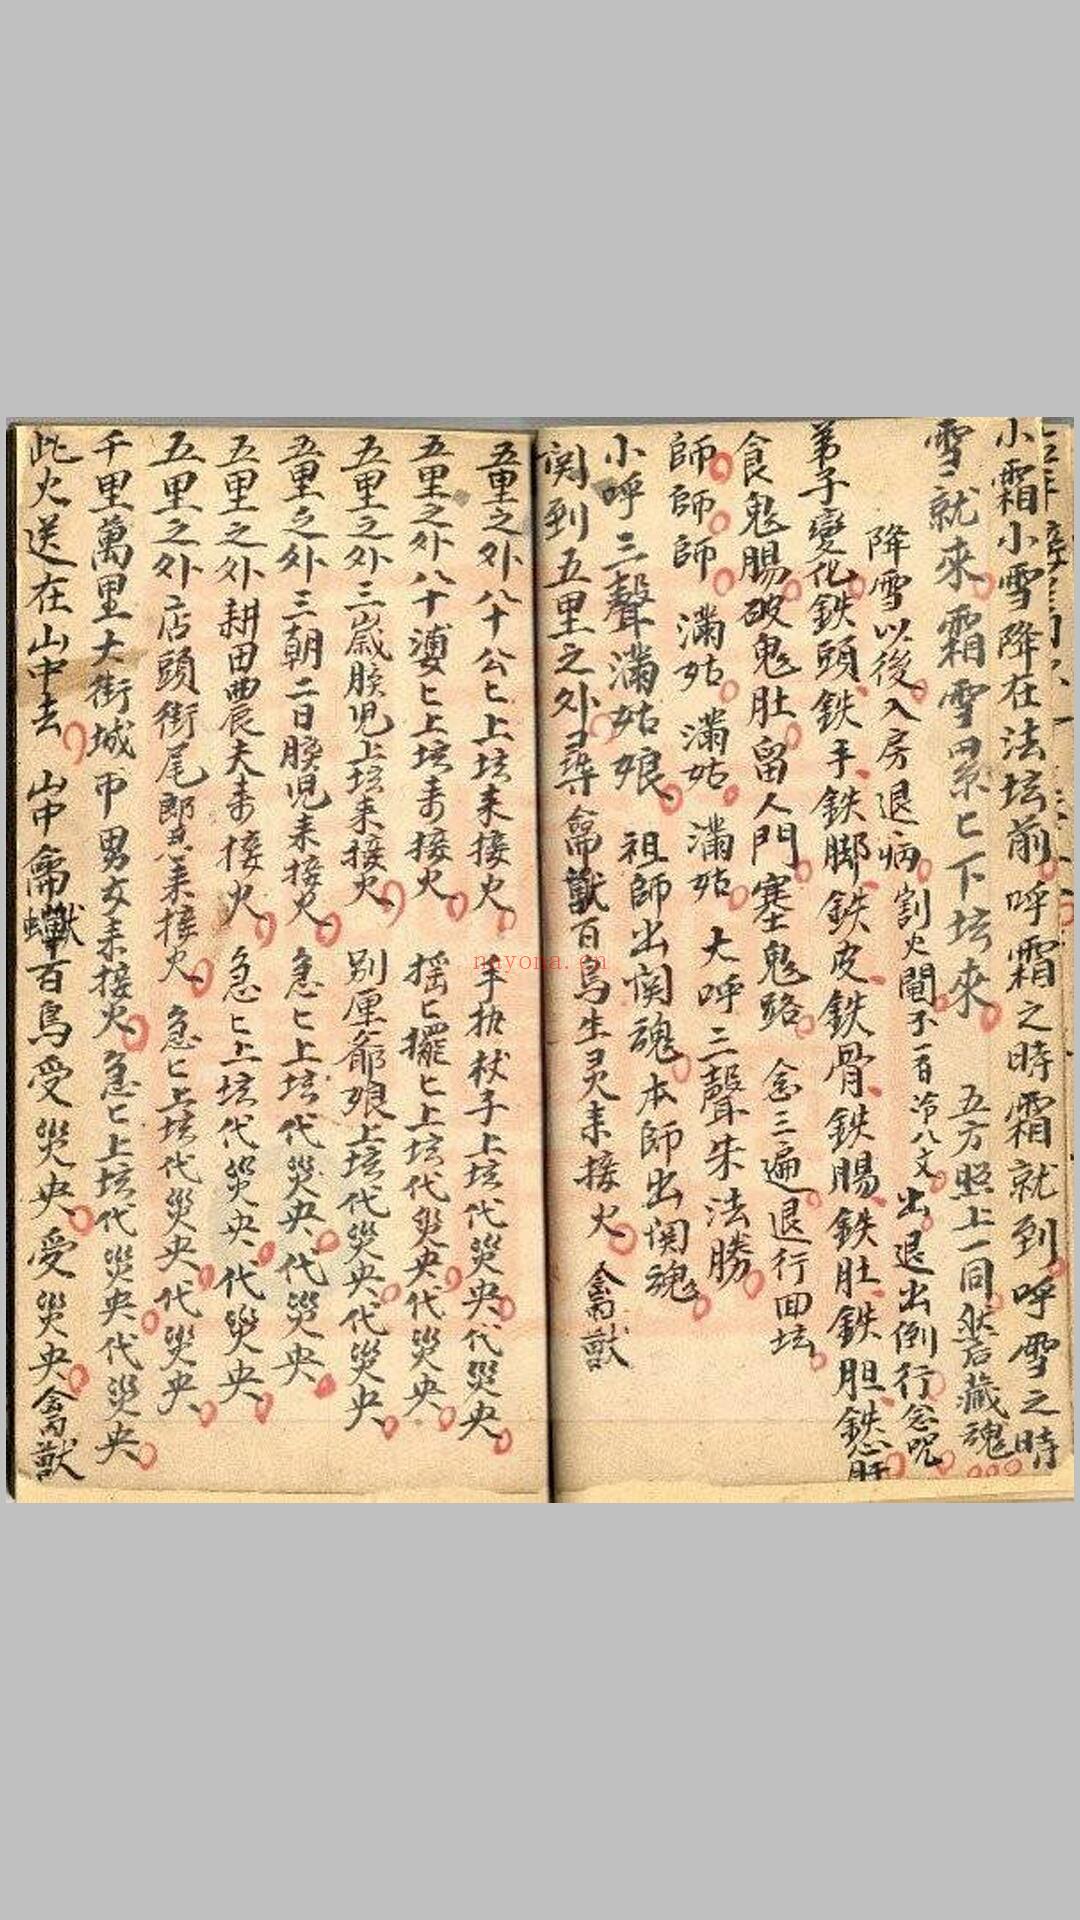 小霜小雪降在法坛前呼霜之時霜就到呼雪之時
雪就來霜雪四祭匕下坛來 五方照上一同然后藏魂
降雪以後入房退病割火閹不一百冷八文出退出倒行念咒
弟子變化鉄頭鉄手鉄脚鉄皮鉄骨鉄腸鉄肚鉄胆鉄心肝
食鬼腸破鬼肚留人門塞鬼路 念三遍退行回坛
師師師 滿姑滿姑滿姑 大呼三聲朱法勝
小呼三聲滿姑娘 祖師出関魂本師出関魂
関到五里之外尋禽獸百鳥生灵来接火 禽獸
五里之外八十公匕上坛来接火 手执杖子上坛代災央代災央
五里之外八十婆匕上坛来接火 摇匕擺匕上坛代災央代災央
五里之外三歲孩児上坛来接火 别厘爺娘上坛代災央代災央
五里之外三朝二日孩児来接火 急匕上坛代災央代災央
五里之外耕田農夫来接火 急匕上坛代災央代災央
五里之外店頭街尾郎来接火 急匕上坛代災央代災央
千里萬里大街城市男女来接火急匕上坛代災央代災央
此火送在山中去 山中禽獸百鳥受災央受災央禽獸
nayona.cn